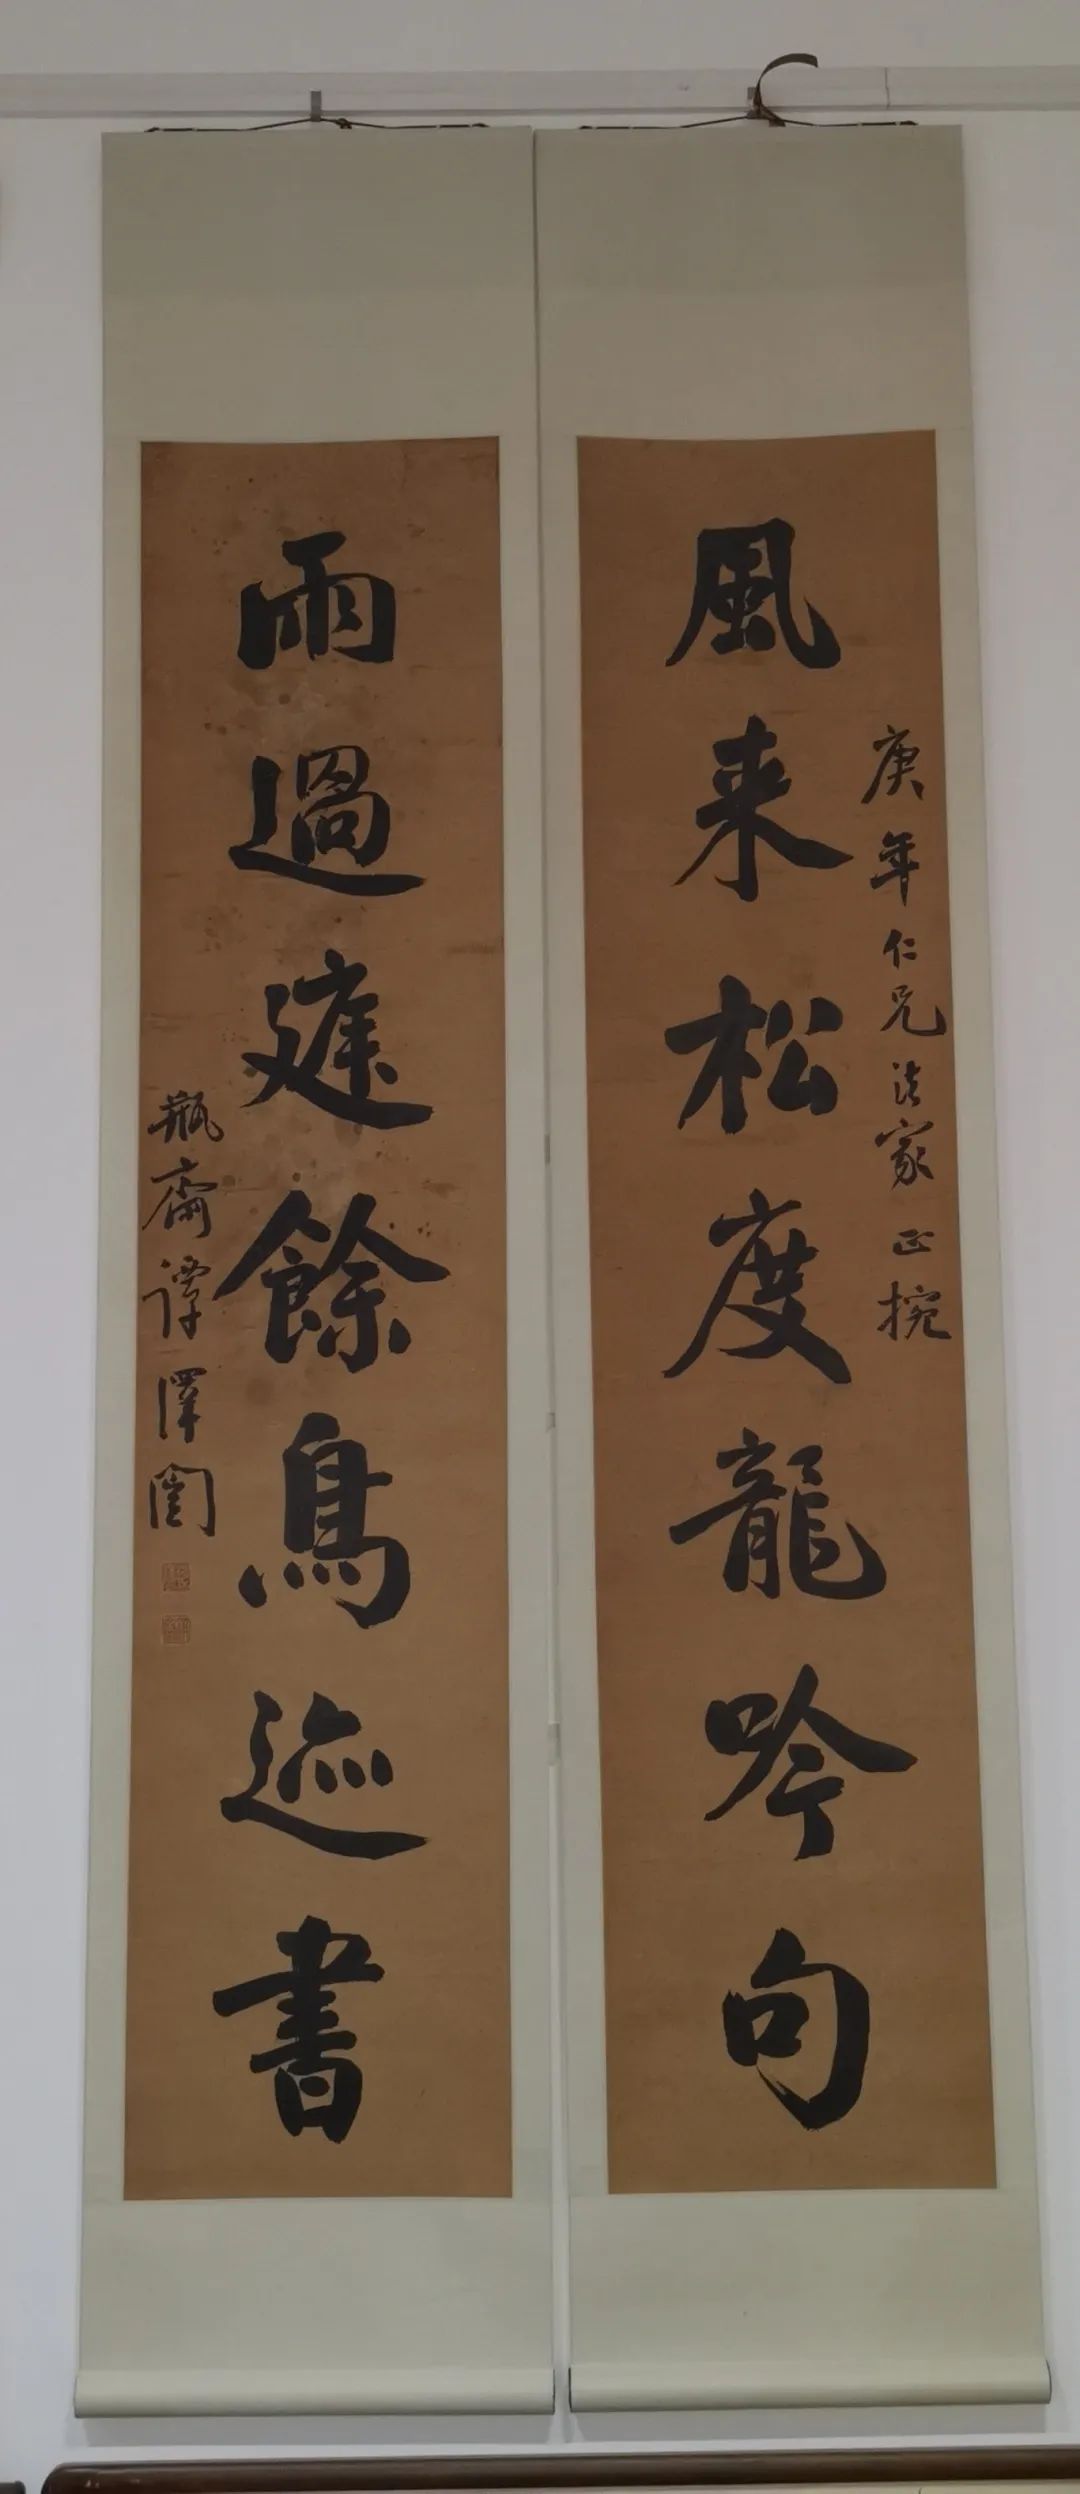 庚年仁兄法家正捥
風来松度龍吟句
雨過庭餘鳥迹書
瓶齋譚澤闓